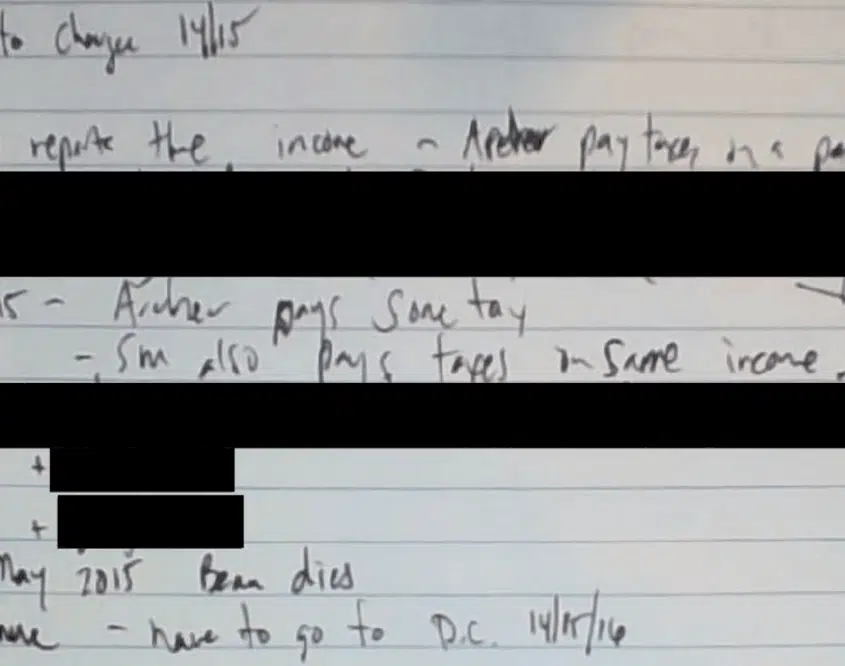 to charge 14/15
reports the income - Archer pay taxes on a pa
15 - Archer pays some tax
- Sm also pays taxes on same income.
+
+
May 2015 Beau dies
- have to go to D.C. 14/15/16